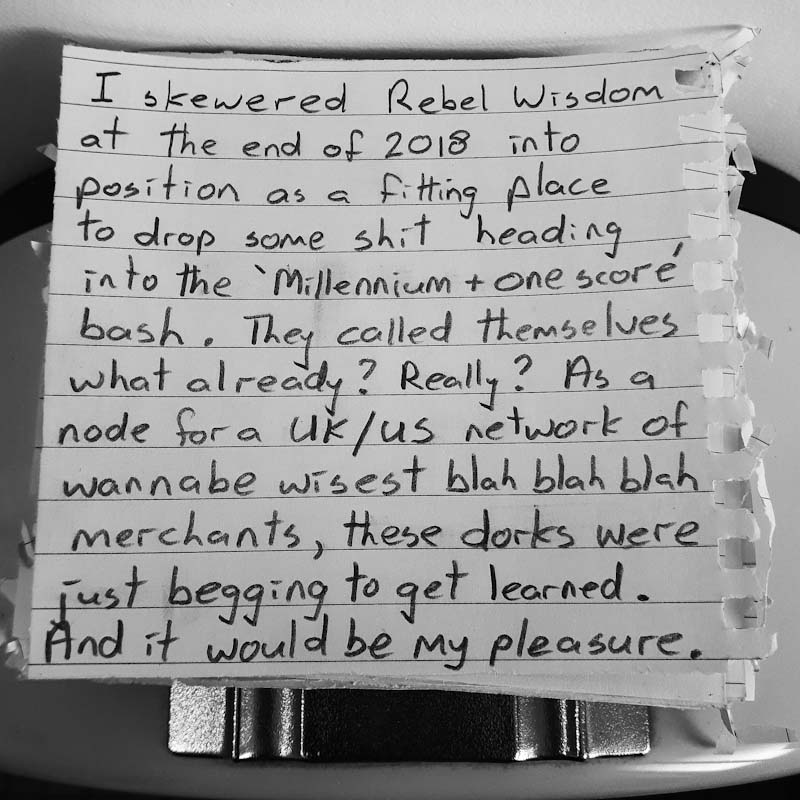 I skewered Rebel Wisdom
at the end of 2018 into
position as a fitting place
to drop some shit heading
into the 'Millennium + one score'
bash. They called themselves
what already? Really? As a
node for a UK/US network of
wannabe wisest blah blah blah
merchants, these dorks were
just begging to get learned.
And it would be my pleasure.